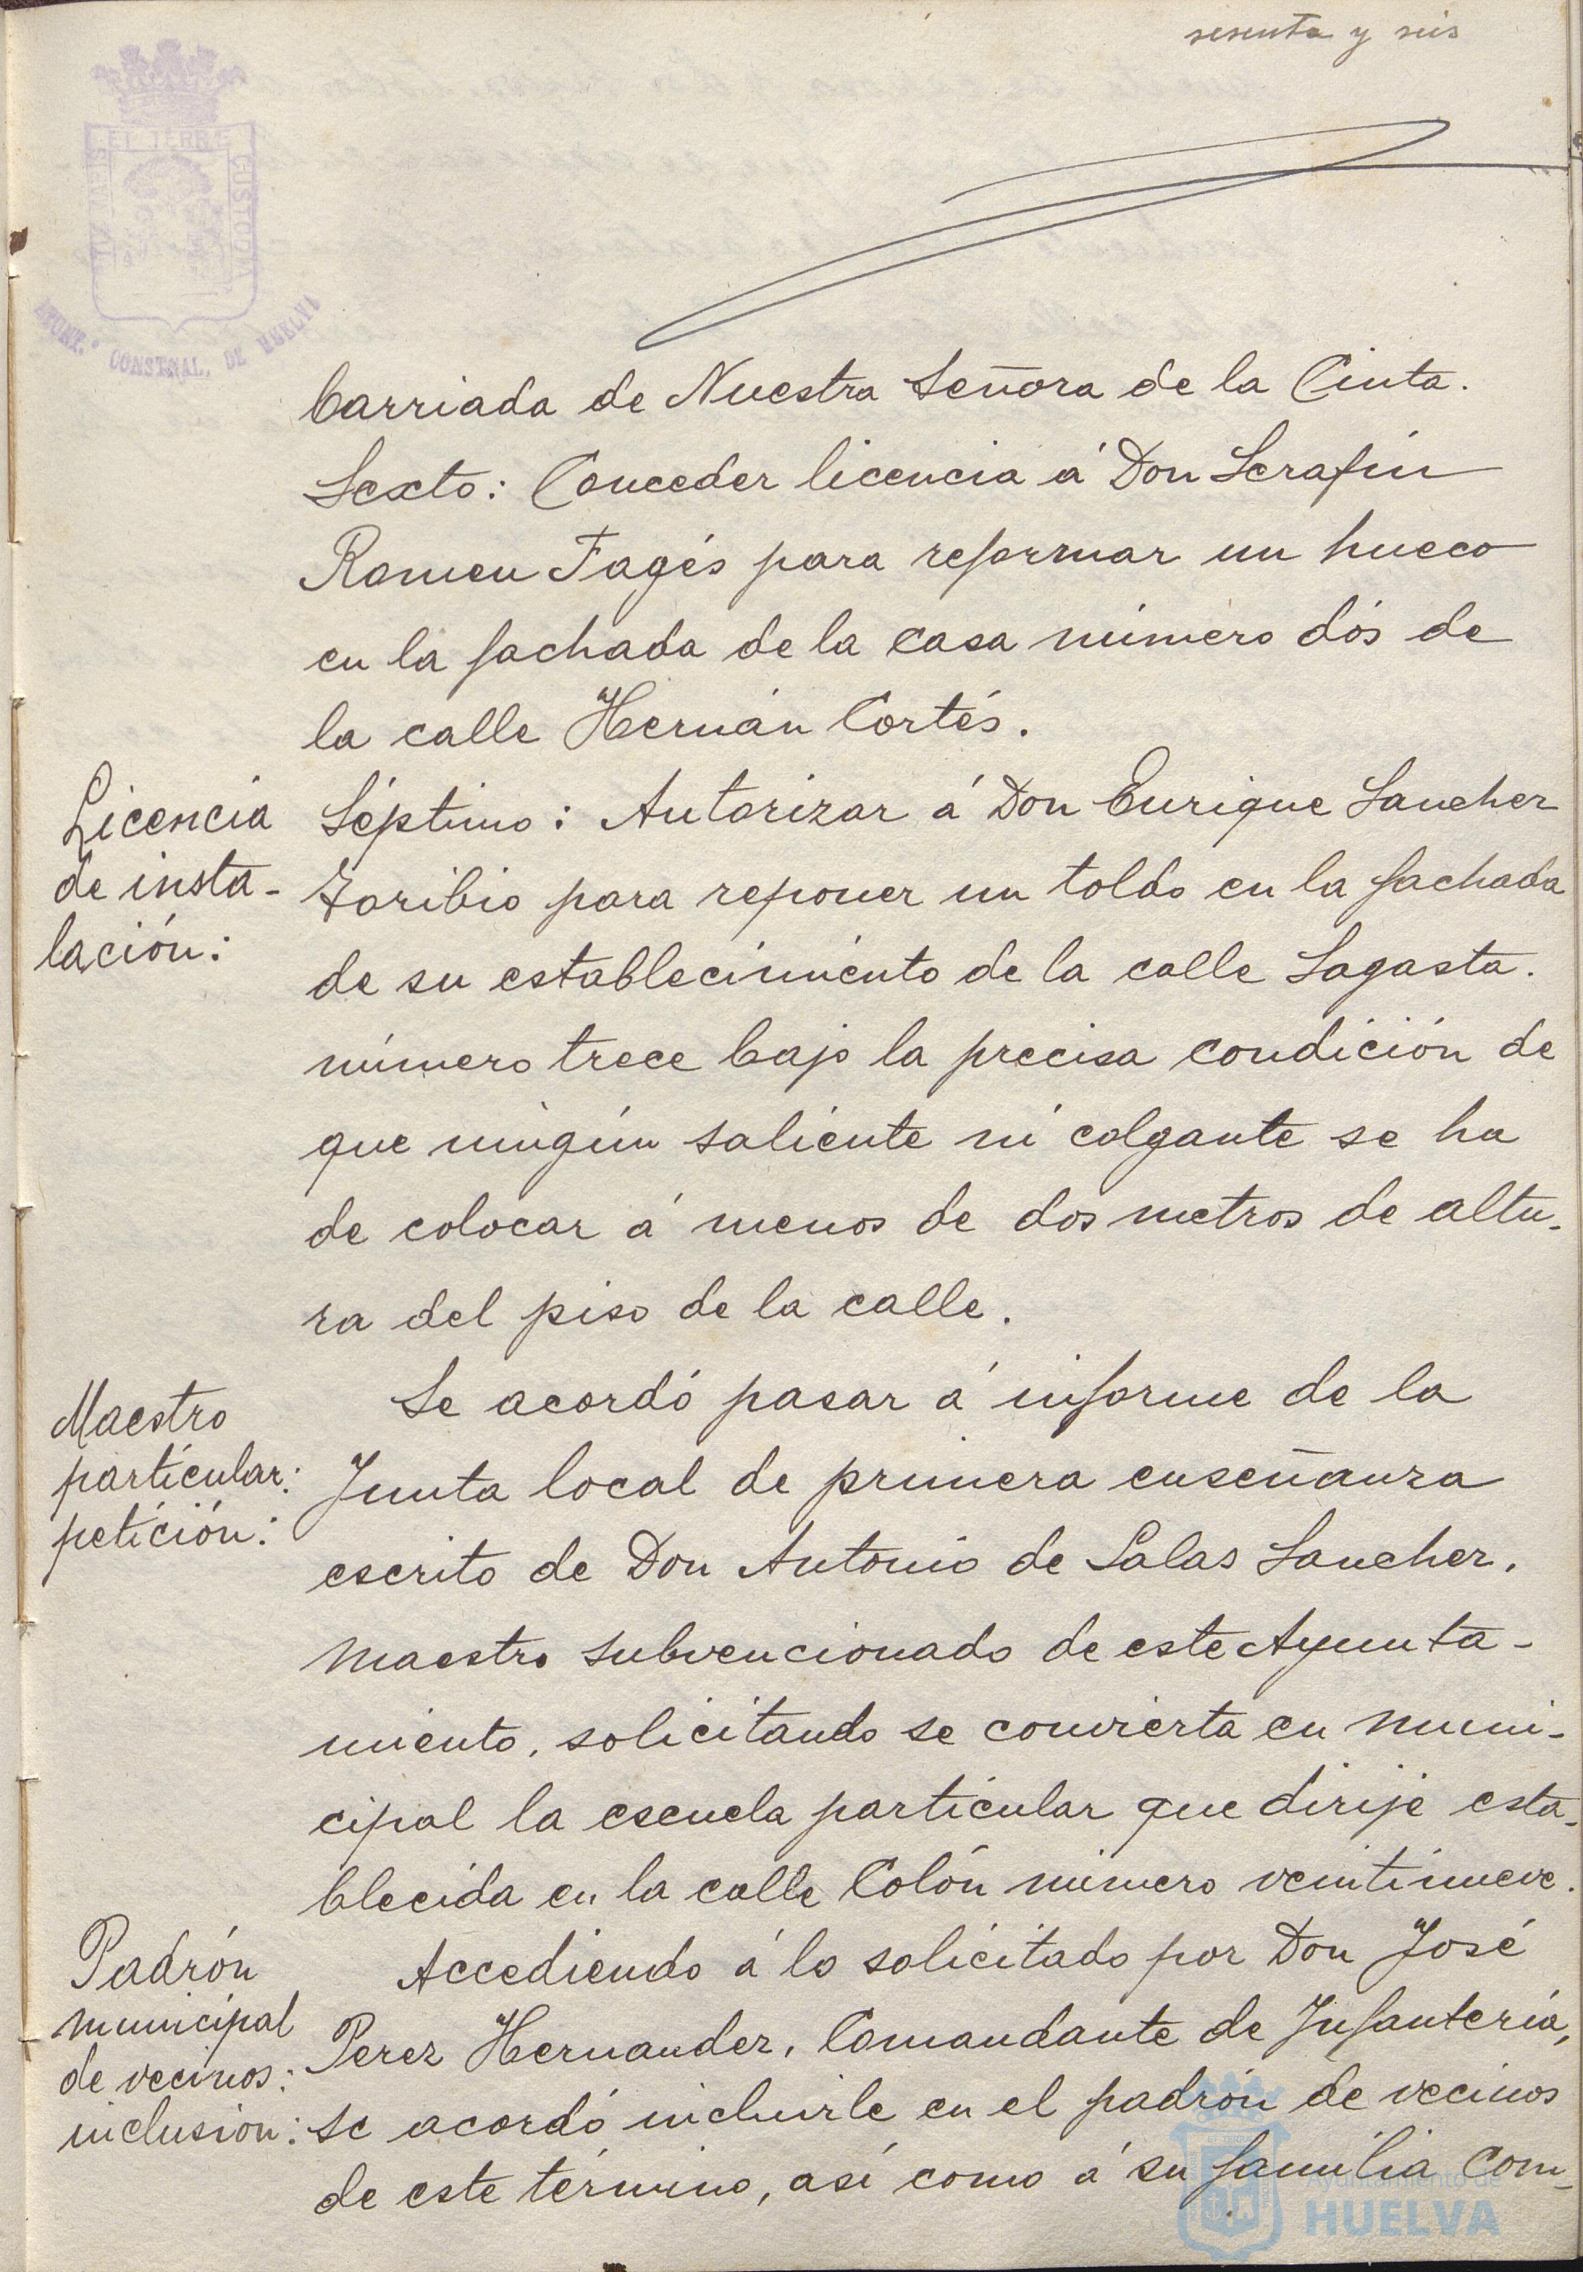 sesenta y seis
PORTUS MARIS ET TERRÆ CUSTODIA
AYUNT.º CONSTNAL. DE HUELVA
barriada de Nuestra Señora de la Cinta.
Sexto: Conceder licencia á Don Serafín
Romeu Fagés para reformar un hueco
en la fachada de la casa número dós de
la calle Hernán Cortés.
Licencia
de insta-
lación:
Séptimo: Autorizar á Don Enrique Sanchez
Toribio para reponer un toldo en la fachada
de su establecimiento de la calle Sagasta.
número trece bajo la precisa condición de
que ningún saliente ni colgante se ha
de colocar á menos de dos metros de altu-
ra del piso de la calle.
Maestro
particular:
petición:
Se acordó pasar á informe de la
Junta local de primera enseñanza
escrito de Don Antonio de Salas Sanchez,
maestro subvencionado de este Ayunta-
miento, solicitando se convierta en muni-
cipal la escuela particular que dirije esta-
blecida en la calle Colón número veintinueve.
Padrón
municipal
de vecinos:
inclusión:
Accediendo á lo solicitado por Don José
Perez Hernandez, Comandante de Infantería,
se acordó incluirle en el padrón de vecinos
de este término, así como á su familia com-
Ayuntamiento de
HUELVA